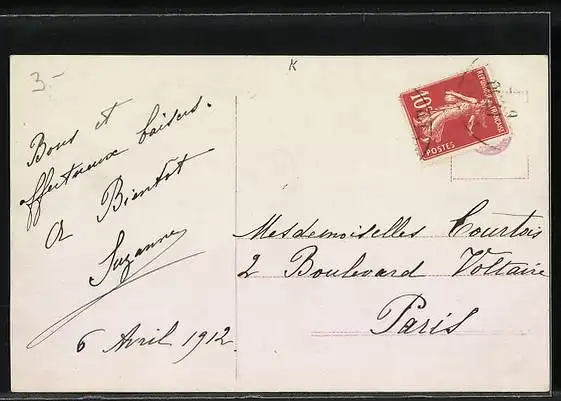 3-
K
Bons et
affectueux baisers.
A Bientôt
Suzanne
6 Avril 1912.
10
POSTES
Mesdemoiselles Courtois
2 Boulevard Voltaire
Paris